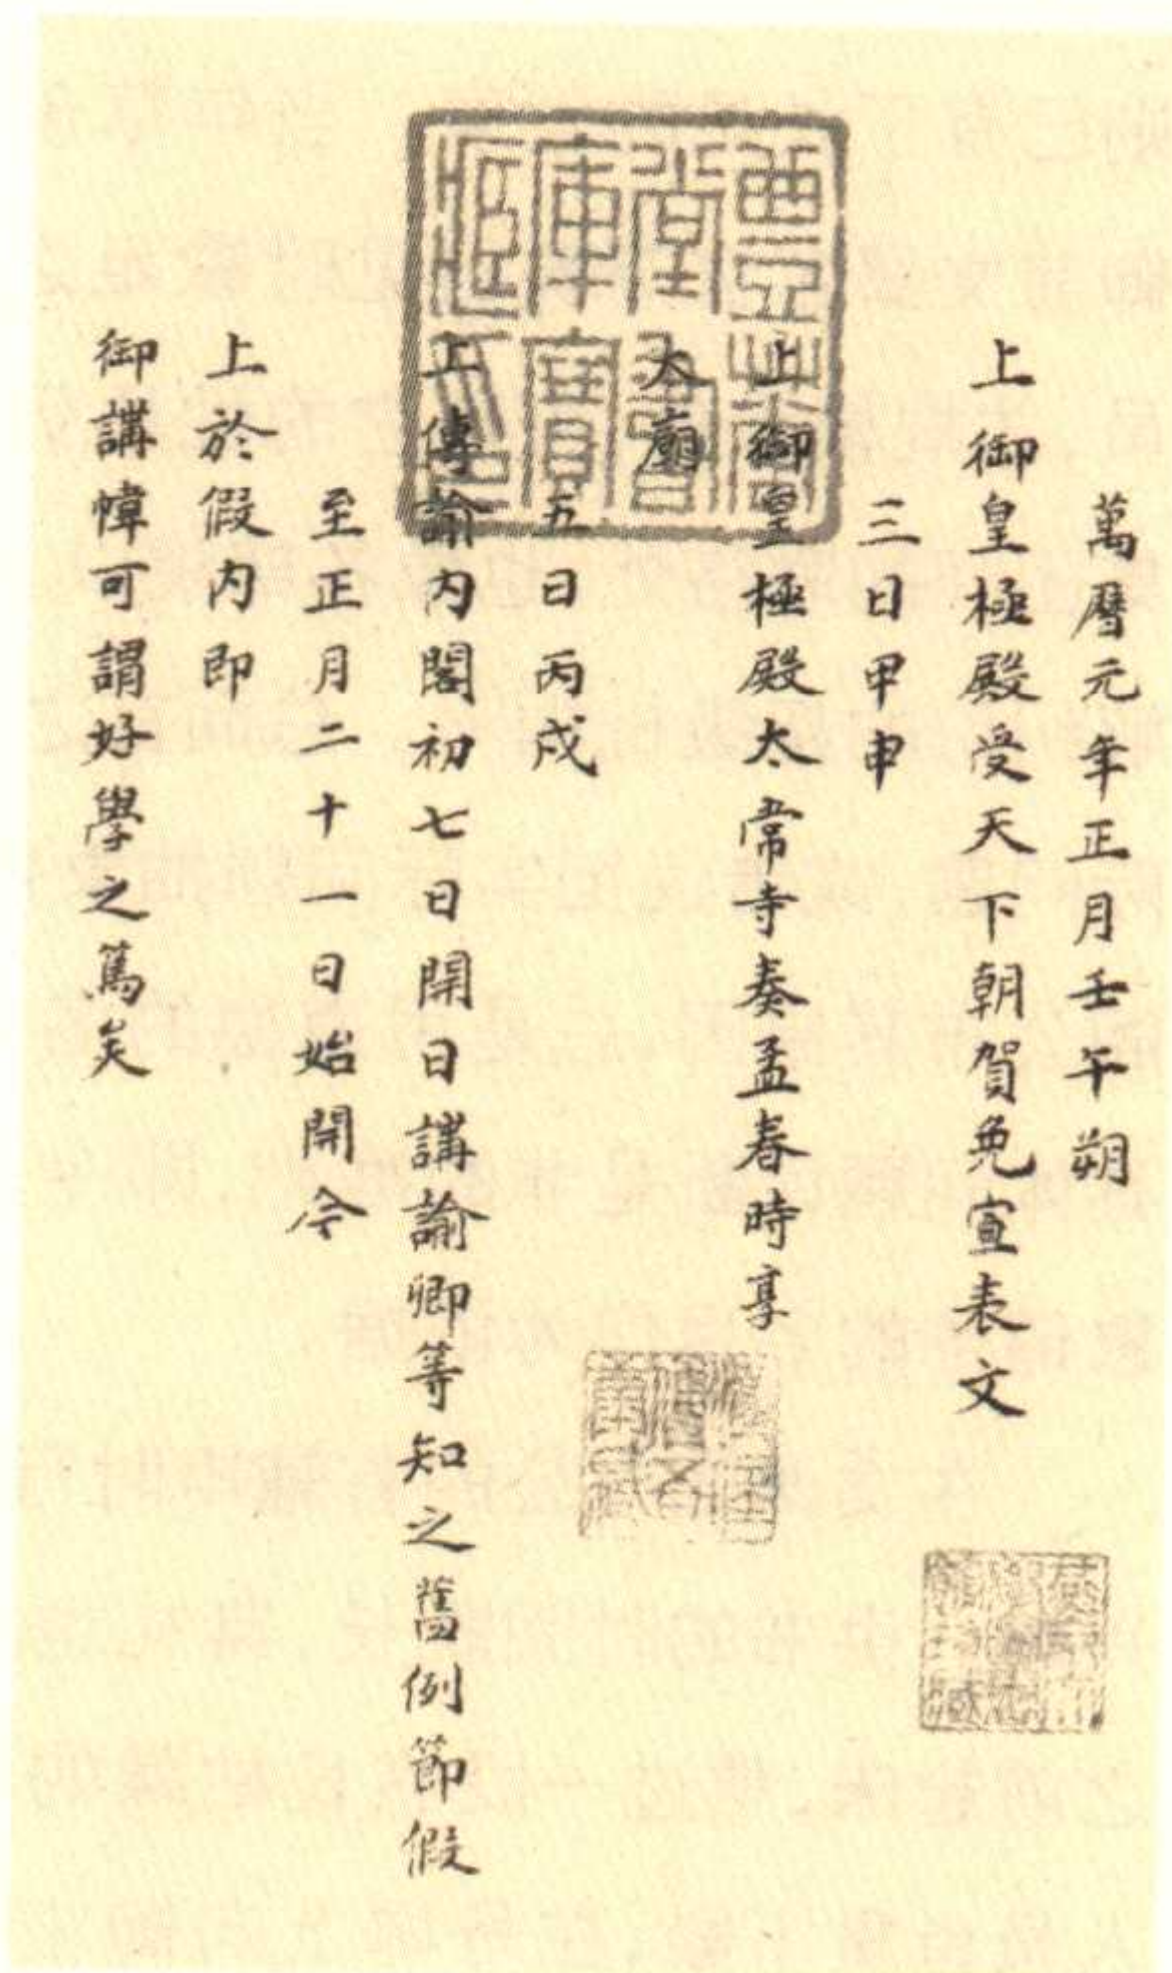 萬曆元年正月壬午朔
上御皇極殿受天下朝賀免宣表文
三日甲申
上御皇極殿太常寺奏孟春時享
太廟
五日丙戌
上傳諭内閣初七日開日講諭卿等知之舊例節假
至正月二十一日始開今
上於假内即
御講幃可謂好學之篤矣
豐華
堂書
庫寶
藏印